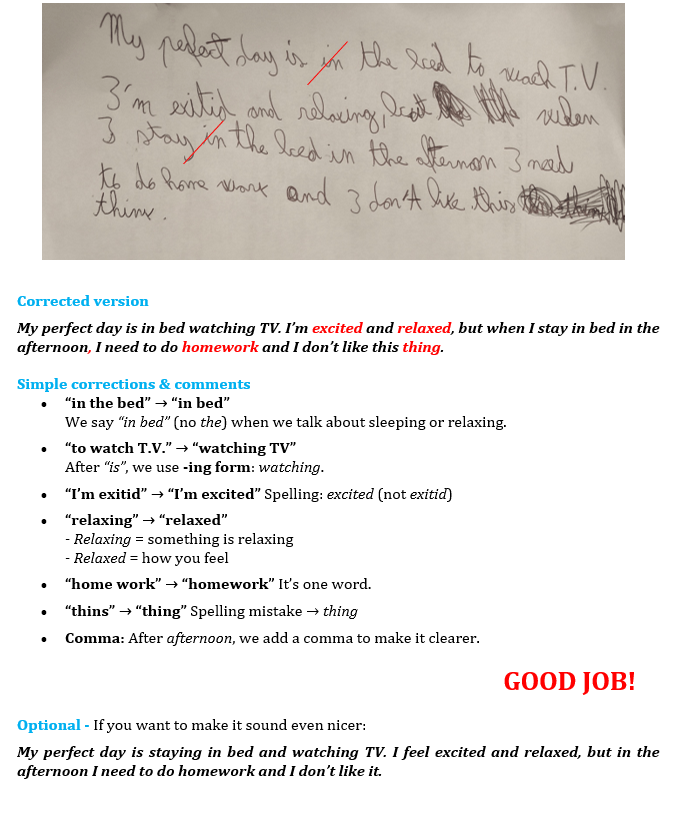 My pefect day is in the bed to wach T.V.
I'm exitid and relaxing, but when
I stay in the bed in the afternon I need
to do home work and I don't like this
thinx.
Corrected version
My perfect day is in bed watching TV. I'm excited and relaxed, but when I stay in bed in the
afternoon, I need to do homework and I don't like this thing.
Simple corrections & comments
• "in the bed" → "in bed"
We say "in bed" (no the) when we talk about sleeping or relaxing.
• "to watch T.V." → "watching TV"
After "is", we use -ing form: watching.
• "I'm exitid" → "I'm excited" Spelling: excited (not exitid)
• "relaxing" → "relaxed"
- Relaxing = something is relaxing
- Relaxed = how you feel
• "home work" → "homework" It's one word.
• "thins" → "thing" Spelling mistake → thing
• Comma: After afternoon, we add a comma to make it clearer.
GOOD JOB!
Optional - If you want to make it sound even nicer:
My perfect day is staying in bed and watching TV. I feel excited and relaxed, but in the
afternoon I need to do homework and I don't like it.